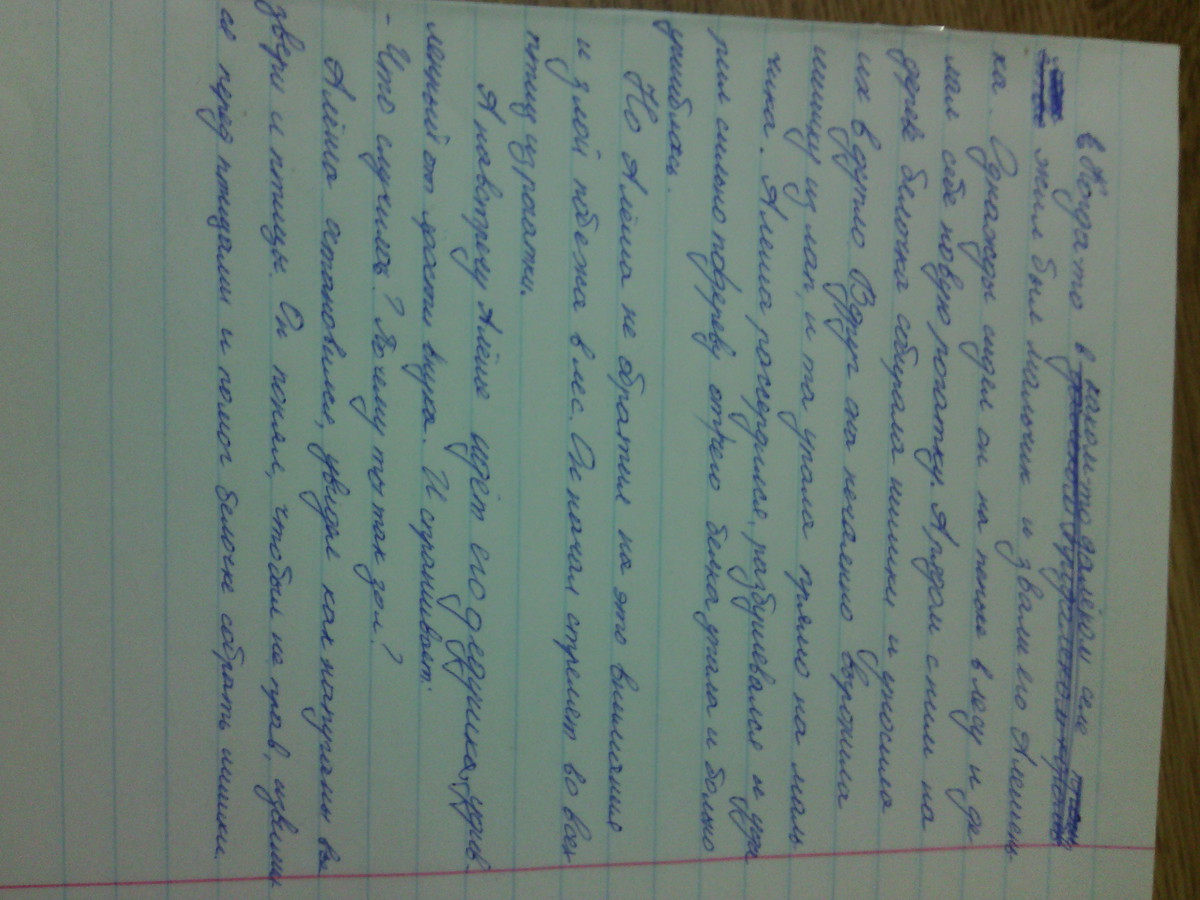 в Когда то в каком-то далёком селе
жил был мальчик и звали его Алешень
ка. Однажды сидел он на пеньке в лесу и де
лал себе новую рогатку. А рядом с ним на
дереве белочка собирала шишки и уносила
их в дупло. Вдруг она нечаянно выронила
шишку из лап, и та упала прямо на маль
чика. Алеша рассердился, разбушевался и уда
рил сильно по дереву отчего белка упала и больно
ушиблась.
Но Алёша не обратил на это внимание
и злой побежал в лес. Он начал стрелят во всех
птиц из рогатки.
А навстречу Алёше идёт его дедушка, удив
лённый от злости внука. И спрашивает:
- Что случилось? Почему ты так зол?
Алёша остановился, увидел как напуганы все
звери и птицы. Он понял, что был не прав, извинил
ся перед птицами и помог белочке собрать шишки.